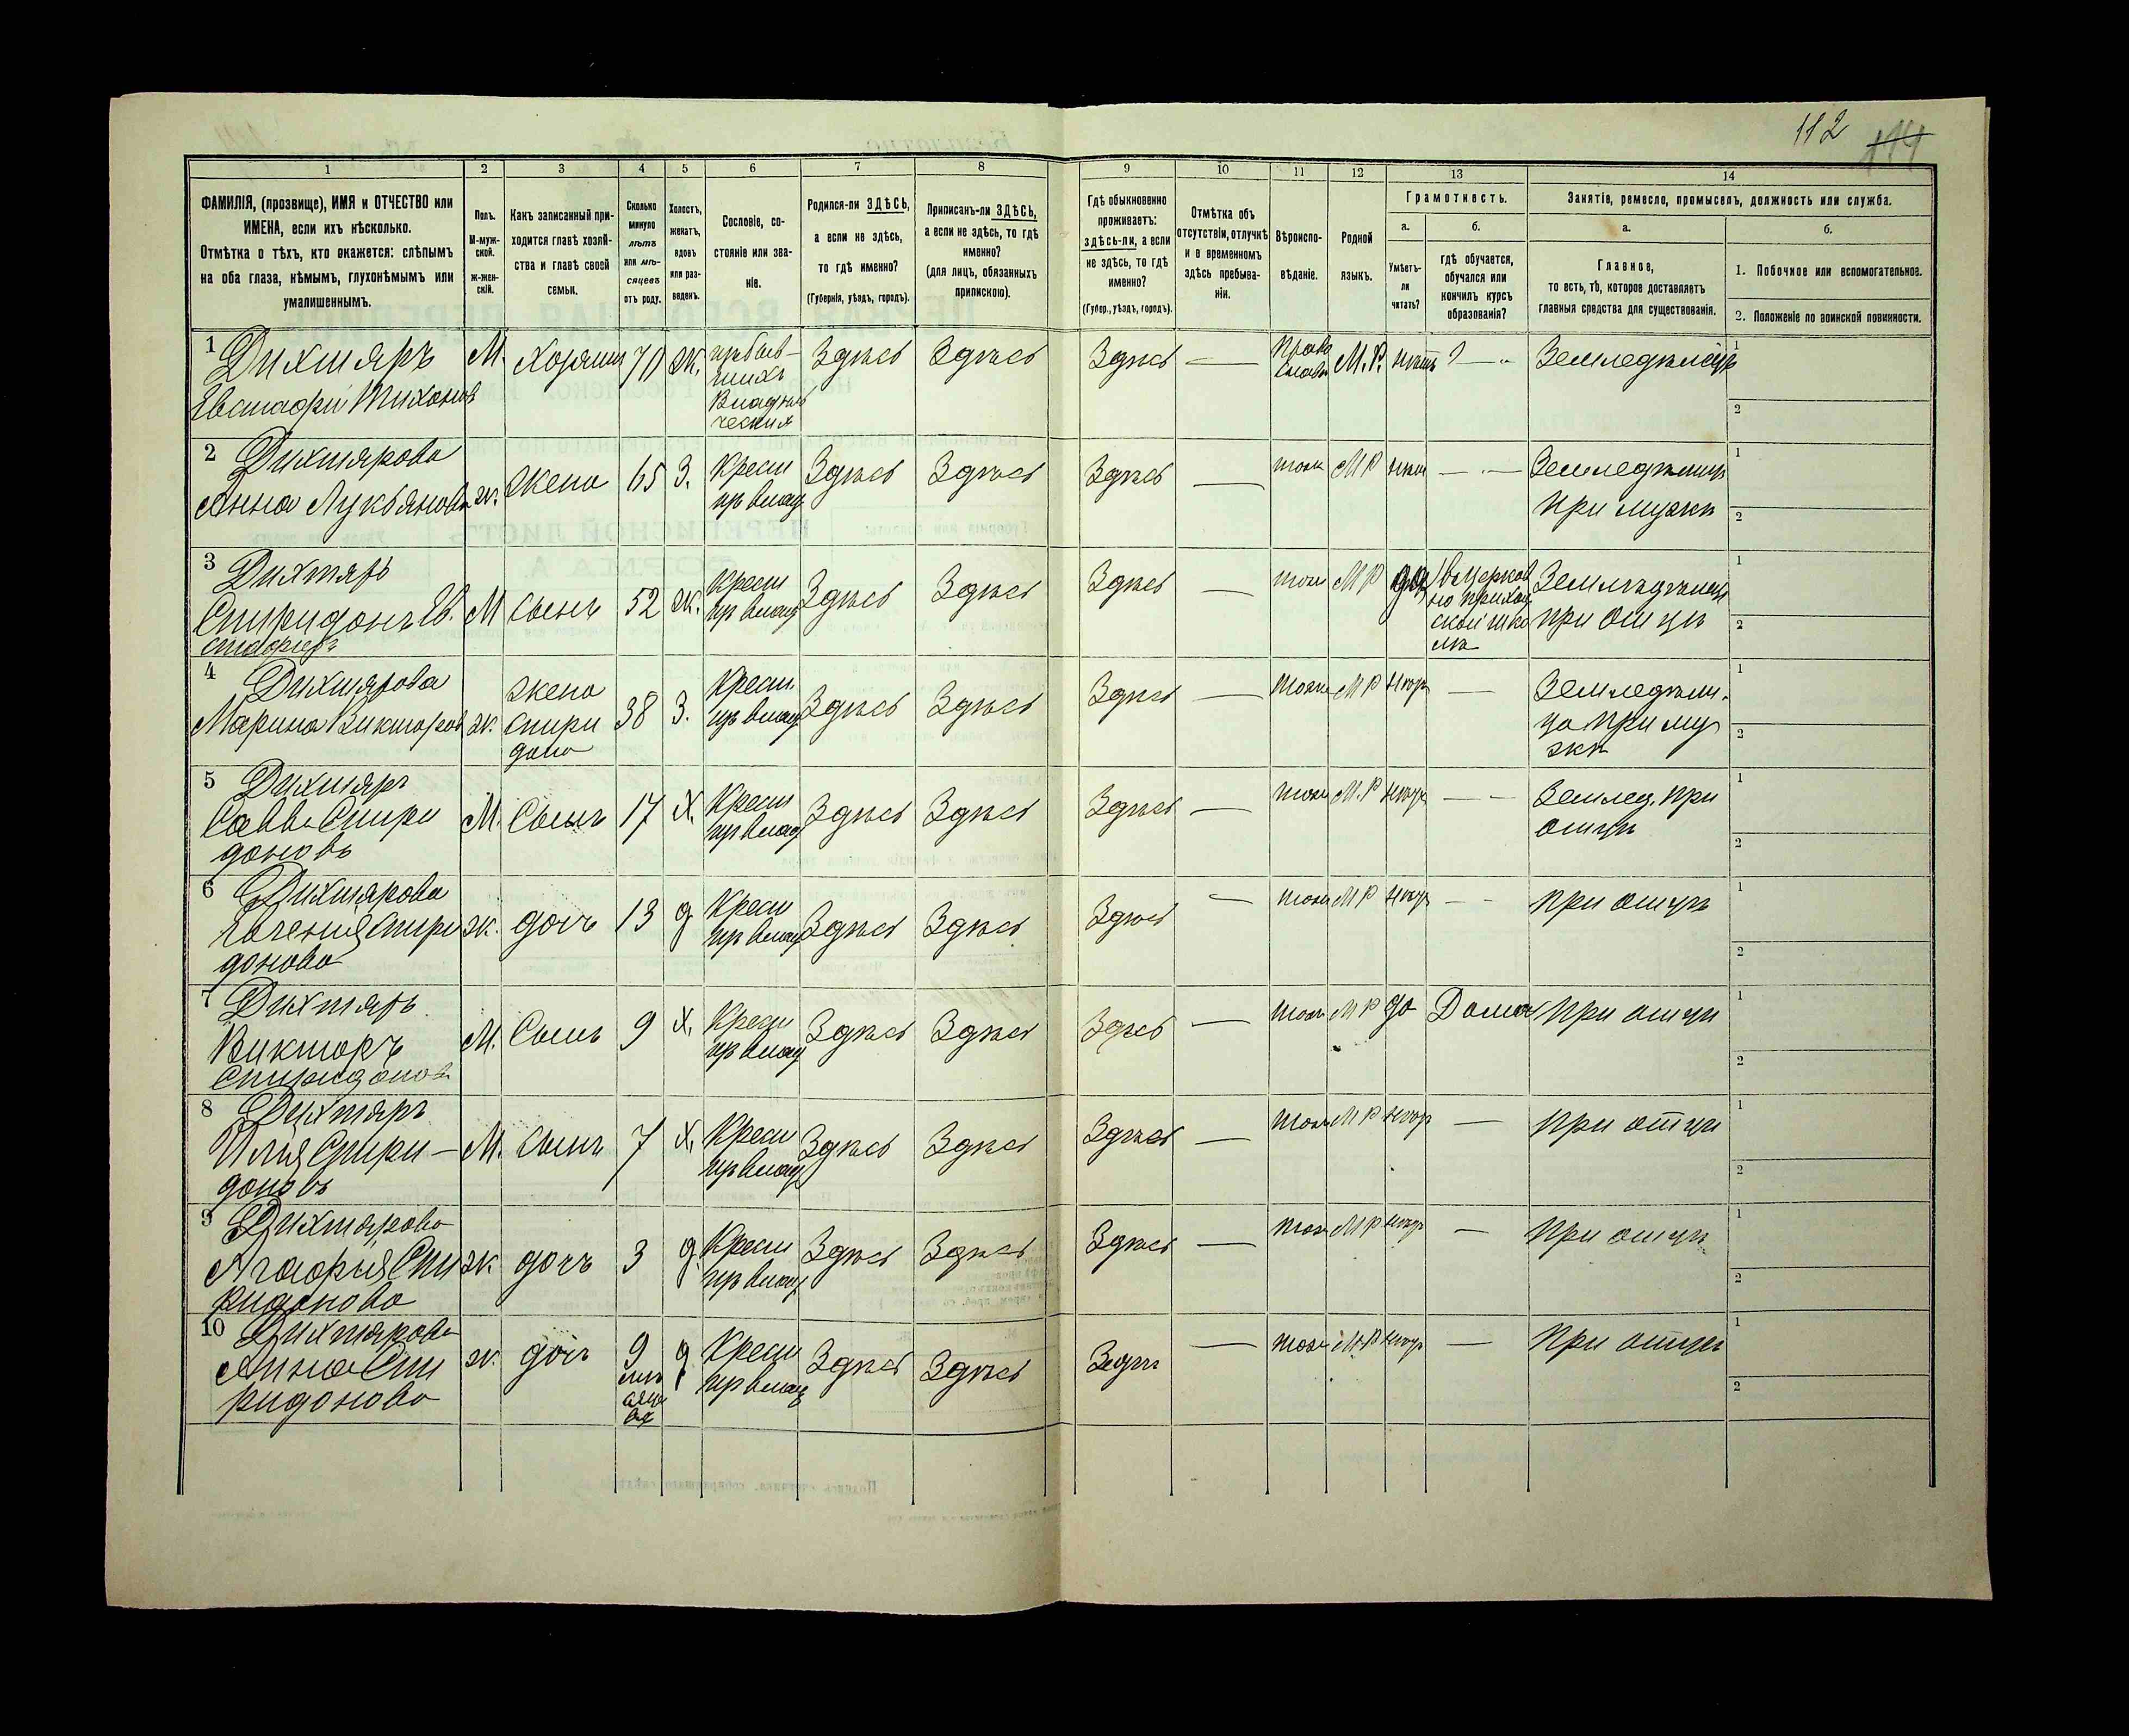 112
114
1
2
3
4
5
6
7
8
9
10
11
12
13
14
ФАМИЛІЯ, (прозвище), ИМЯ и ОТЧЕСТВО или
ИМЕНА, если ихъ нѣсколько.
Отмѣтка о тѣхъ, кто окажется: слѣпымъ
на оба глаза, нѣмымъ, глухонѣмымъ или
умалишеннымъ.
Полъ.
М-муж-
ской.
Ж-жен-
скій.
Какъ записанный при-
ходится главѣ хозяй-
ства и главѣ своей
семьи.
Сколько
минуло
лѣтъ
или мѣ-
сяцевъ
отъ роду.
Холостъ,
женатъ,
вдовъ
или раз-
веденъ.
Сословіе, со-
стояніе или зва-
ніе.
Родился-ли ЗДѢСЬ,
а если не здѣсь,
то гдѣ именно?
(Губернія, уѣздъ, городъ).
Приписанъ-ли ЗДѢСЬ,
а если не здѣсь, то гдѣ
именно?
(для лицъ, обязанныхъ
припискою).
Гдѣ обыкновенно
проживаетъ:
здѣсь-ли, а если
не здѣсь, то гдѣ
именно?
(Губер., уѣздъ, городъ).
Отмѣтка объ
отсутствіи, отлучкѣ
и о временномъ
здѣсь пребыва-
ніи.
Вѣроиспо-
вѣданіе.
Родной
языкъ.
Грамотность.
а.
Умѣетъ-
ли
читать?
б.
гдѣ обучается,
обучался или
кончилъ курсъ
образованія?
Занятіе, ремесло, промыселъ, должность или служба.
а.
Главное,
то есть, тѣ, которое доставляетъ
главныя средства для существованія.
б.
1. Побочное или вспомогательное.
2. Положеніе по воинской повинности.
1 Дихтяръ
Евстафи Тихонов
М. Хозяин 70 ж. Здѣсь Здѣсь Здѣсь — М.Р. нѣтъ — Земледѣлецъ
1
2
2 Дихтярова
Анна Лукьянова
ж. жена 65 З. Крест
Здѣсь Здѣсь Здѣсь — тоже М Р — Земледѣлица
при мужѣ
1
2
3 Дихтяръ
Спиридонъ Ев.
стафіевъ
М сынъ 52 ж. Крест
Здѣсь Здѣсь Здѣсь — тоже М Р да
в церков
но приход
ской шко
лѣ
при отцѣ
1
2
4 Дихтярова
Марина Викторов
ж. жена
Спири
дона
38 З. Крест.
Здѣсь Здѣсь Здѣсь — тоже М Р —
Земледѣли.
ца при му
жѣ
1
2
5 Дихтяръ
Савва Спири
доновъ
М. Сынъ 17 Х. Крест
Здѣсь Здѣсь Здѣсь — тоже М.Р — Землед. при
отцѣ
1
2
6 Дихтярова
Спири
донова
ж. дочь 13 д Крест
Здѣсь Здѣсь Здѣсь — тоже М Р — при отцѣ
1
2
7 Дихтяръ
Викторъ
Спиридонов
М. Сынъ 9 х. Крест
Здѣсь Здѣсь Здѣсь — тоже М Р да Дома при отцѣ
1
2
8 Дихтяръ
Илія Спири-
доновъ
М. сынъ 7 х. Крест
Здѣсь Здѣсь Здѣсь — тоже М Р — при отцѣ
1
2
9 Дихтярова
Агафья Спи
ридонова
ж дочь 3 д. Крест
Здѣсь Здѣсь Здѣсь — тоже М Р — при отцѣ
1
2
10 Дихтярова
Анна Спи
ридонова
ж. дочь 9
мѣ
сяце
въ
д Крест
Здѣсь Здѣсь — тоже М Р — при отцѣ
1
2